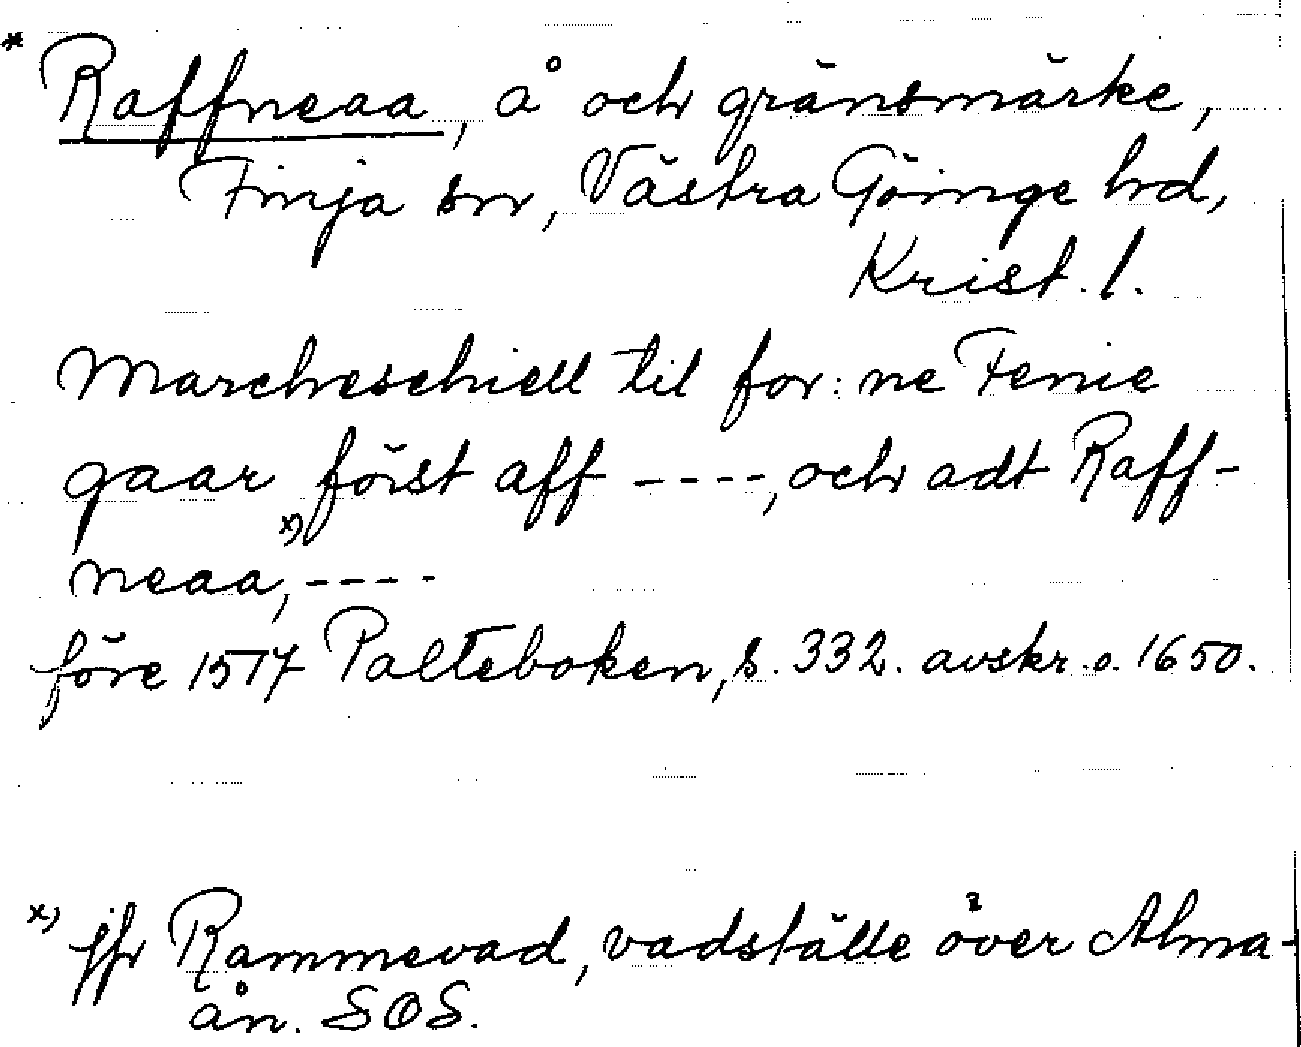 * Raffneaa, å och gränsmärke,
Finja sn, Västra Göinge hd,
Krist. l.
Marcheschiell til for: ne Fenie
gaar först aff ----, och adt Raff-
neaa, x) ----
före 1517 Palteboken, s. 332. avskr. o. 1650.
x) jfr Rammevad, vadställe över Alma-
ån. SOS.